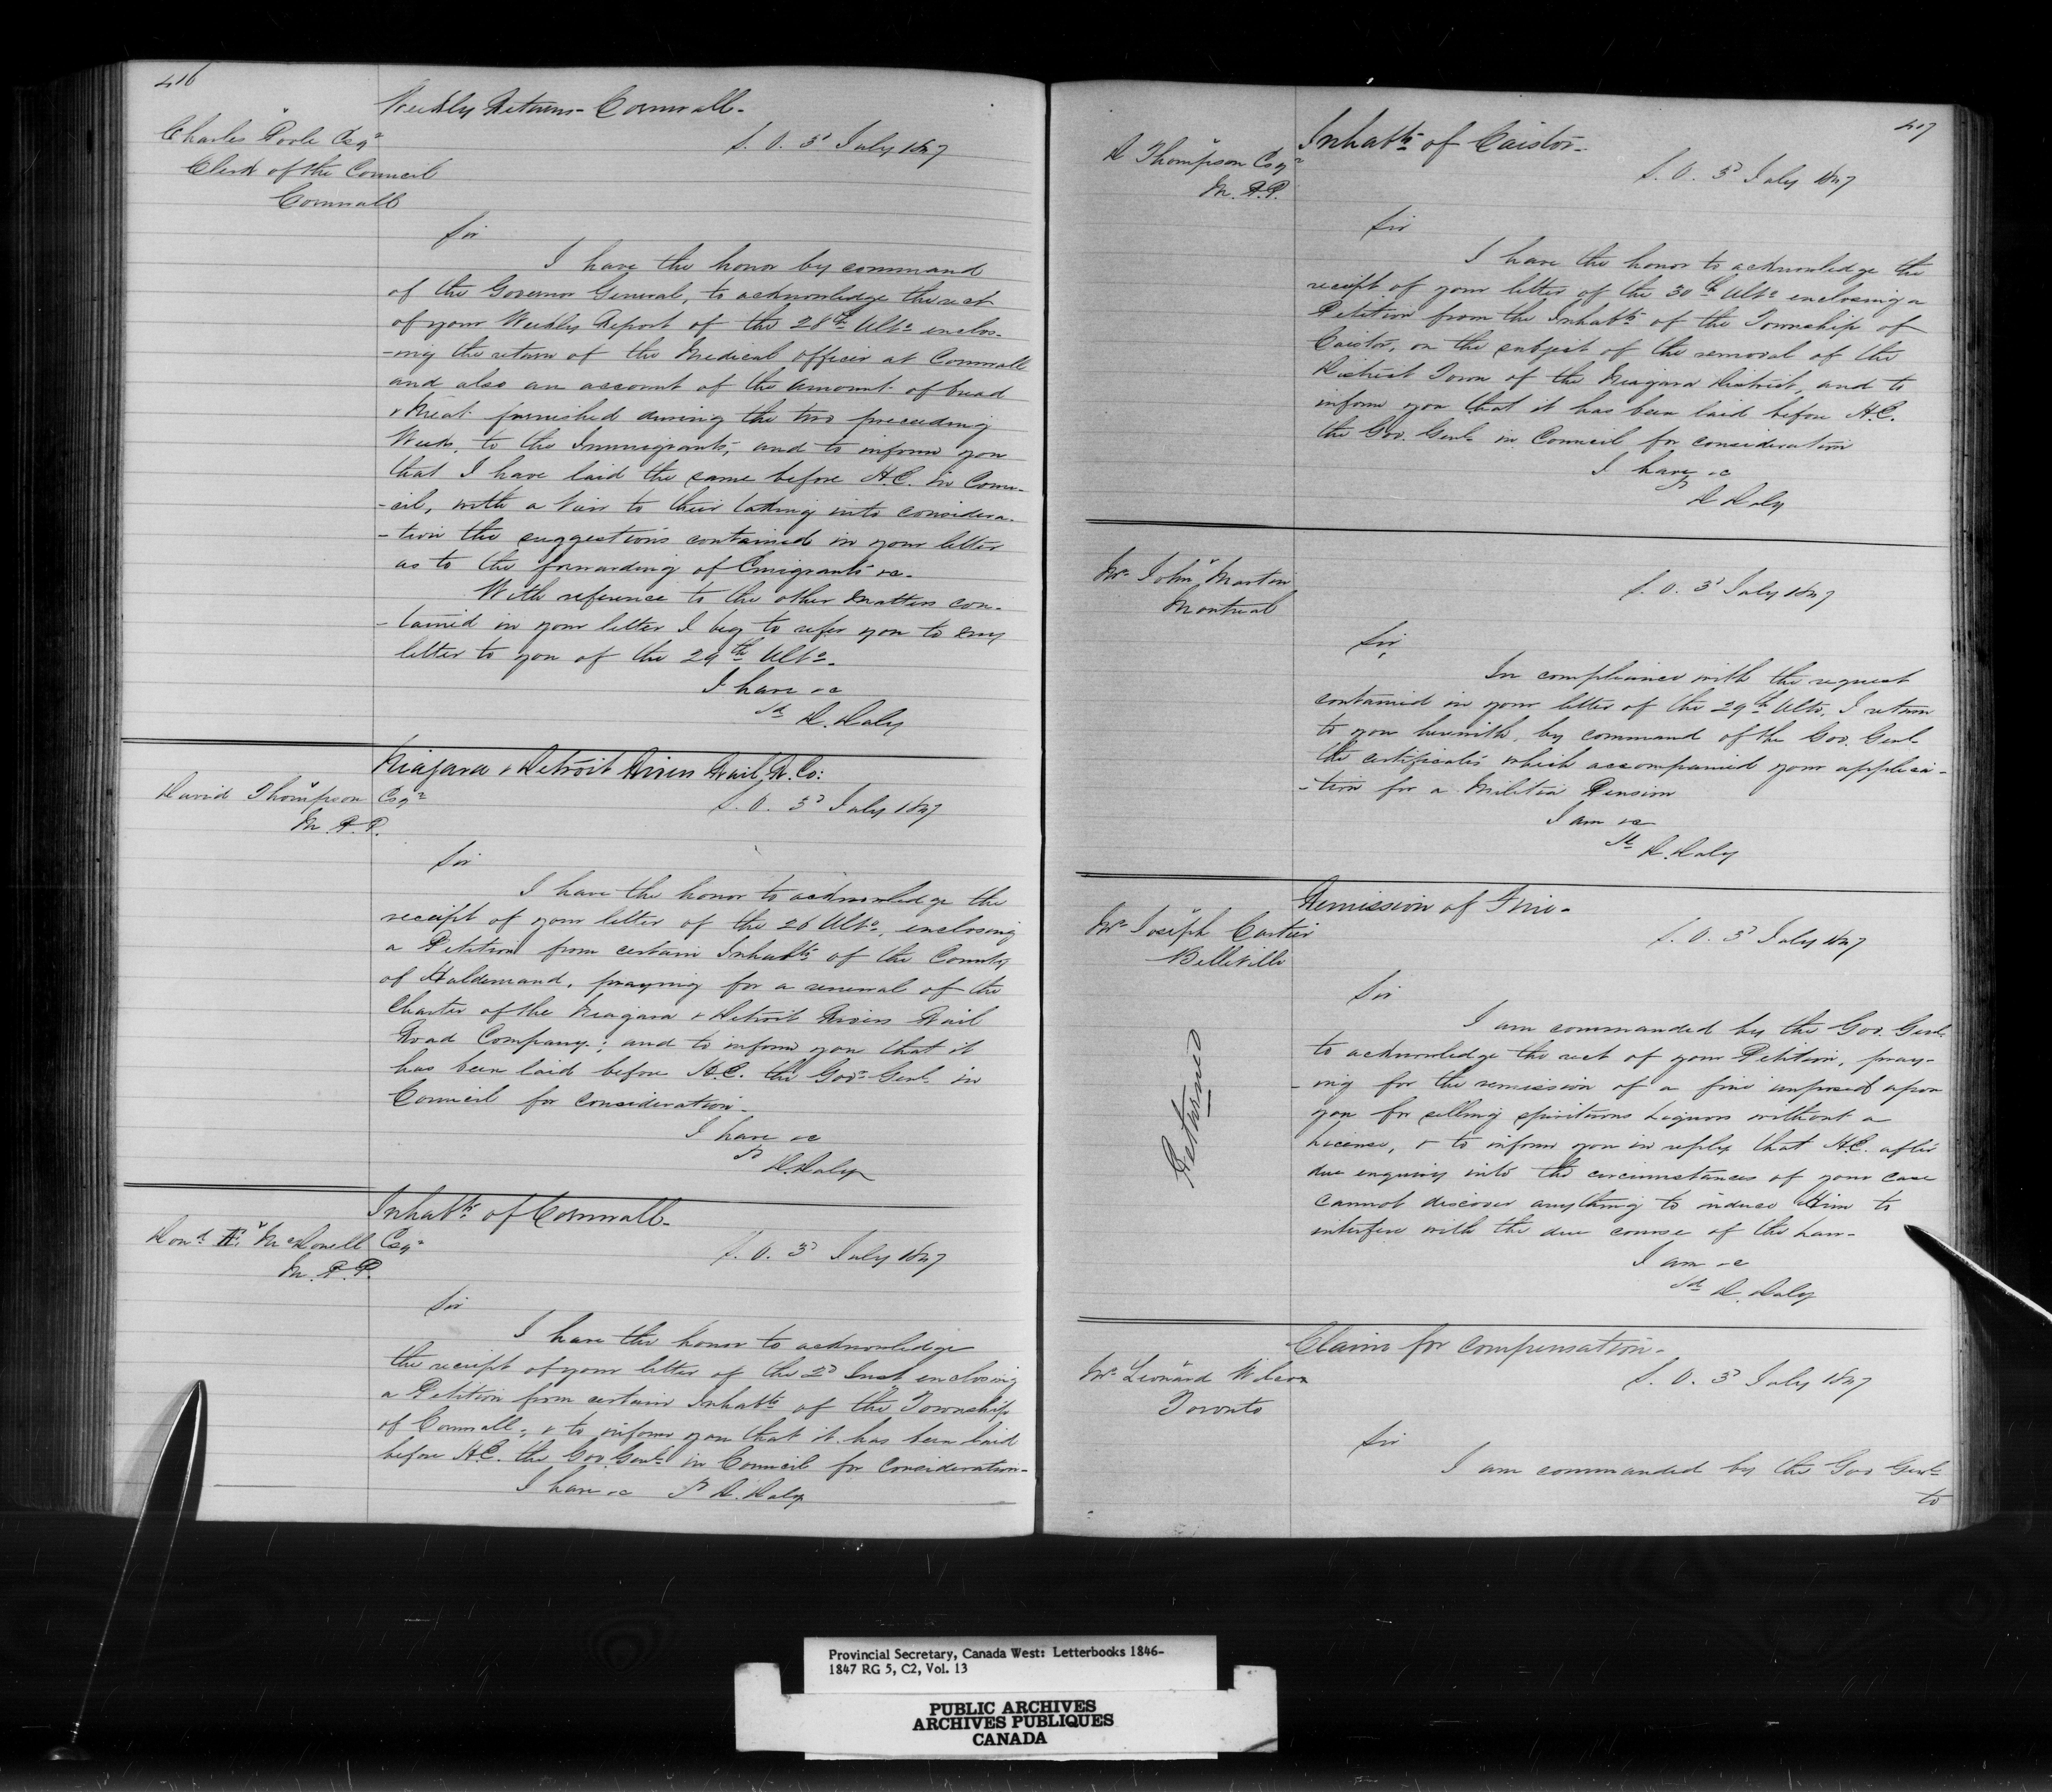 416
Weekly Returns - Cornwall -
Charles Poole Esqr
S. O. 3d July 1847
Clerk of the Council
Cornwall
Sir
I have the honor by command
of the Governor General, to acknowledge the rect
of your Weekly Report of the 28th Ulto enclos-
-ing the return of the Medical officer at Cornwall
and also an account of the amount of bread
& Meat furnished during the two preceeding
Weeks, to the Immigrants, and to inform you
that I have laid the same before H.E. in Coun-
-cil, with a View to their taking into considera-
-tion the suggestions contained in your letter
as to the forwarding of Emigrants &c.
With reference to the other matters con-
-tained in your letter I beg to refer you to my
letter to you of the 29th Ulto.
I have &c
Sd D. Daly
Niagara & Detroit Rivers Rail R. Co:
David Thompson Esqr
S. O. 3d July 1847
M. P. P.
Sir
I have the honor to acknowledge the
receipt of your letter of the 26 Ulto, enclosing
a Petition from certain Inhabts of the County
of Haldemand, praying for a renewal of the
Charter of the Niagara & Detroit Rivers Rail
Road Company; and to inform you that it
has been laid before H.E. the Govr Genl in
Council for consideration -
I have &c
Sd D. Daly
Inhabts of Cornwall -
Dond Æ. McDonell Esqr
S. O. 3d July 1847
M. P. P.
Sir
I have the honor to acknowledge
the receipt of your letter of the 2d Inst enclosing
a Petition from certain Inhabts of the Township
of Cornwall; & to inform you that it has been laid
before H.E. the Gov. Genl in Council for Consideration -
I have &c Sd D. Daly
417
Inhabts of Caistor -
D Thompson Esqr
S. O. 3d July 1847
M. P. P.
Sir
I have the honor to acknowledge the
receipt of your letter of the 30th Ulto enclosing a
Petition from the Inhabts of the Township of
Caistor, on the subject of the removal of the
District Town of the Niagara District, and to
inform you that it has been laid before H.E.
the Gov. Genl in Council for consideration
I have &c
Sd D Daly
Mr John Martin
S. O. 3d July 1847
Montreal
Sir,
In compliance with the request
contained in your letter of the 29th Ulto, I return
to you herewith, by command of the Gov. Genl
the certificates which accompanied your applica-
-tion for a Militia Pension
I am &c
Sd D. Daly
Remission of Fine -
Mr Joseph Cartier
S. O. 3d July 1847
Belleville
Returned
Sir
I am commanded by the Gov. Genl
to acknowledge the rect of your Petition, pray-
-ing for the remission of a fine imposed upon
you for selling spirituous Liquors without a
License, & to inform you in reply that H.E. after
due enquiry into the circumstances of your case
cannot discover anything to induce Him to
interfere with the due course of the Law -
I am &c
Sd D. Daly
Claims for compensation -
Mr Leonard Wilcox
S. O. 3d July 1847
Toronto
Sir
I am commanded by the Gov Genl
to
Provincial Secretary, Canada West: Letterbooks 1846-
1847 RG 5, C2, Vol. 13
PUBLIC ARCHIVES
ARCHIVES PUBLIQUES
CANADA